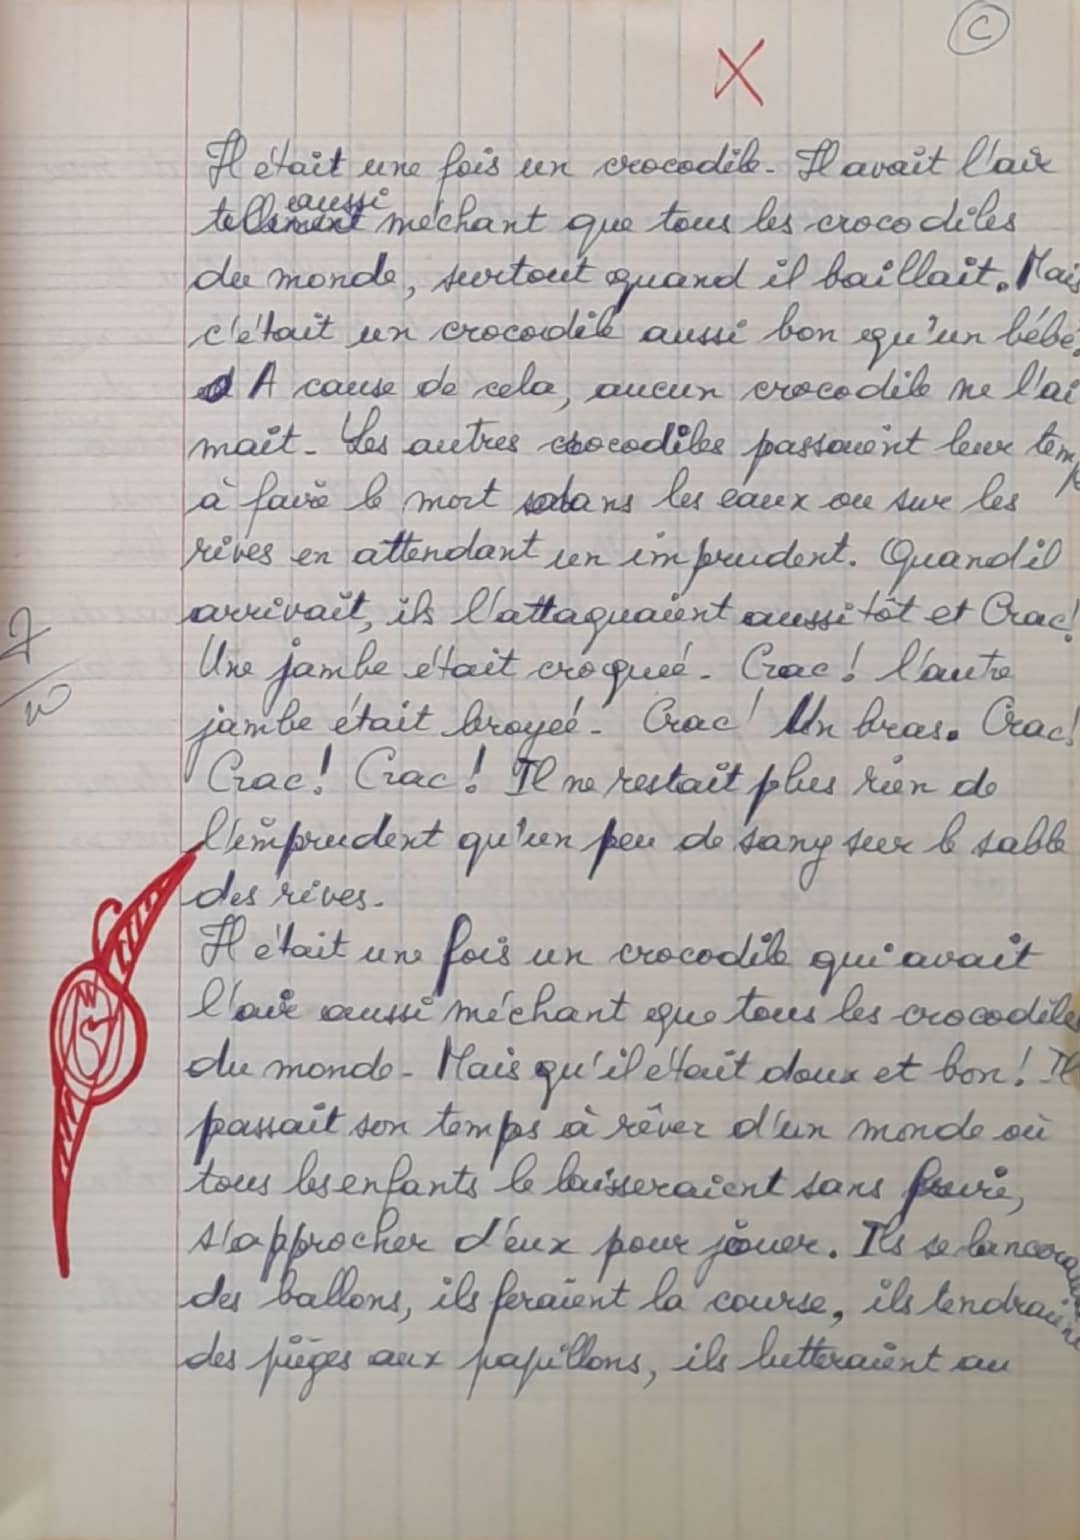 C
X
Il était une fois un crocodile. Il avait l'air
aussi
tellement méchant que tous les crocodiles
du monde, surtout quand il baillait. Mais
c'était un crocodile aussi bon qu'un bébé.
A cause de cela, aucun crocodile ne l'ai
mait. Les autres crocodiles passaient leur temp
à faire le mort dans les eaux ou sur les
rives en attendant un imprudent. Quand il
arrivait, ils l'attaquaient aussitôt et Crac!
Une jambe était croquée. Crac! l'autre
jambe était broyée. Crac! Un bras. Crac!
Crac! Crac! Il ne restait plus rien de
l'imprudent qu'un peu de sang sur le sable
des rives.
Il était une fois un crocodile qui avait
l'air aussi méchant que tous les crocodiles
du monde. Mais qu'il était doux et bon! Il
passait son temps à rêver d'un monde où
tous les enfants le laisseraient sans fuire,
s'approcher d'eux pour jouer. Ils se lanceraient
des ballons, ils feraient la course, ils tendraient
des pièges aux papillons, ils lutteraient au